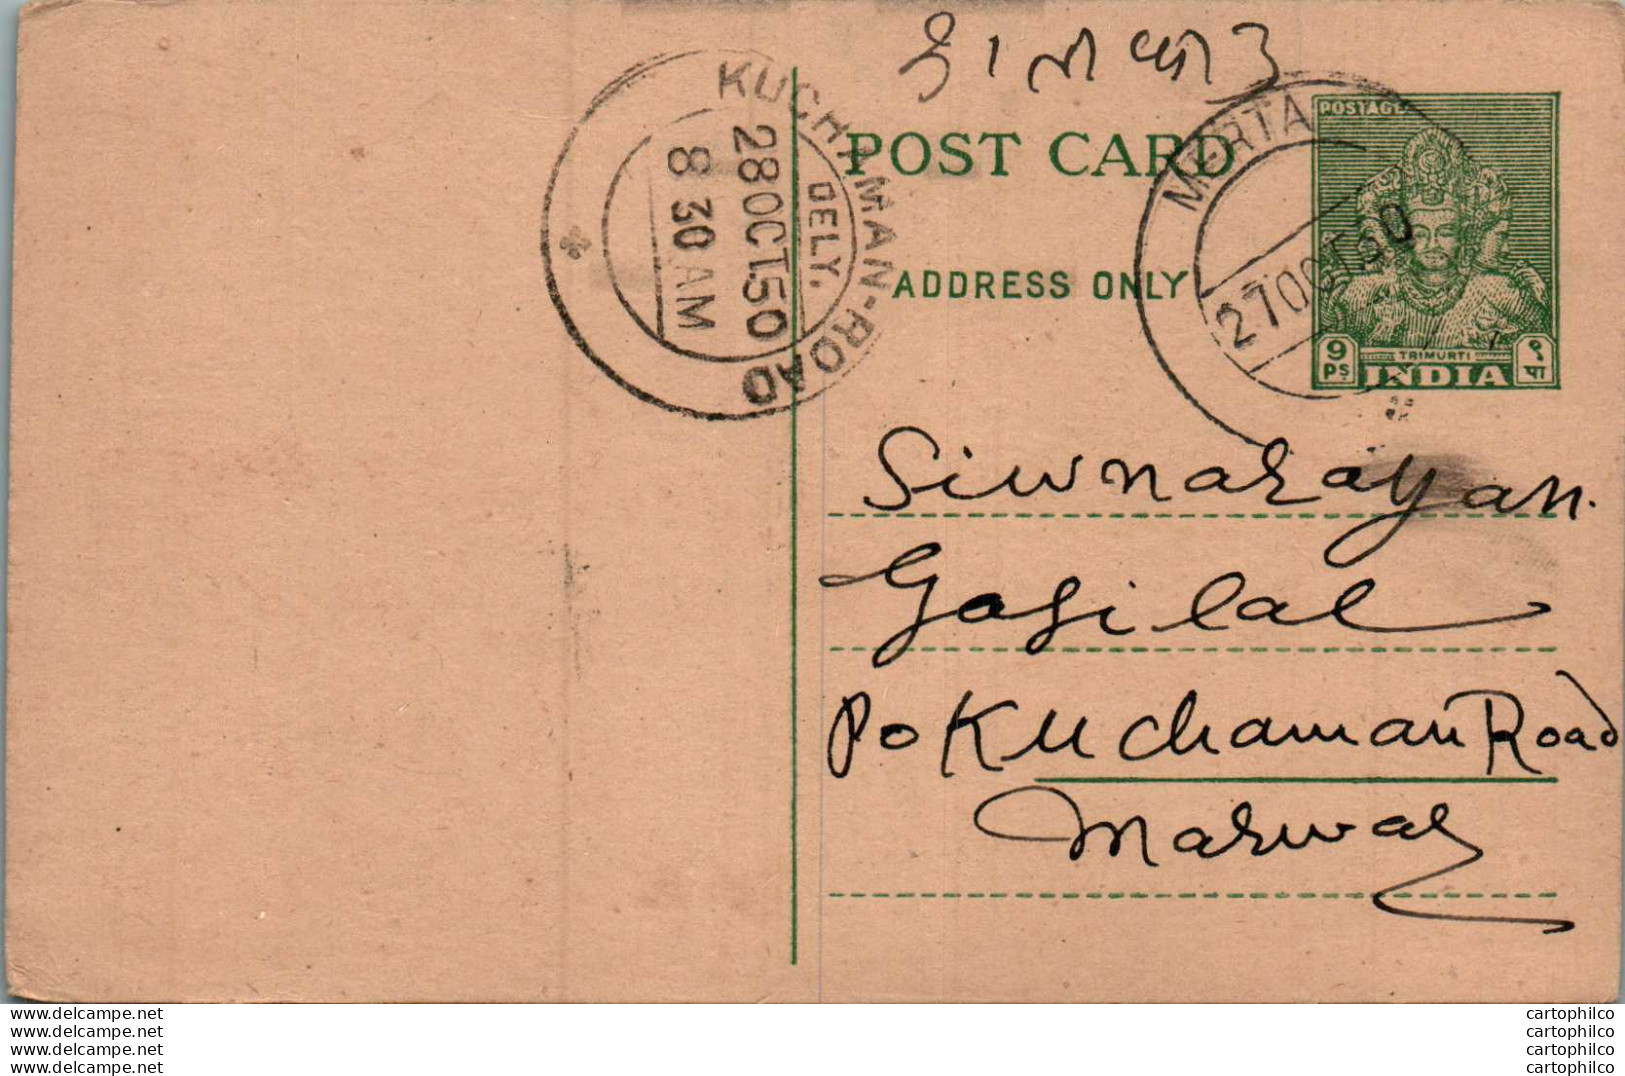 POST CARD
ADDRESS ONLY
POSTAGE
TRIMURTI
9 PS
INDIA
१ पा
MERTA
27 OCT. 50
KUCHAMAN-ROAD
DELY.
28 OCT. 50
8 30 AM
Siwnarayan.
Gasilal
Po Kuchaman Road
Marwar
www.delcampe.net
www.delcampe.net
www.delcampe.net
www.delcampe.net
cartophilco
cartophilco
cartophilco
cartophilco